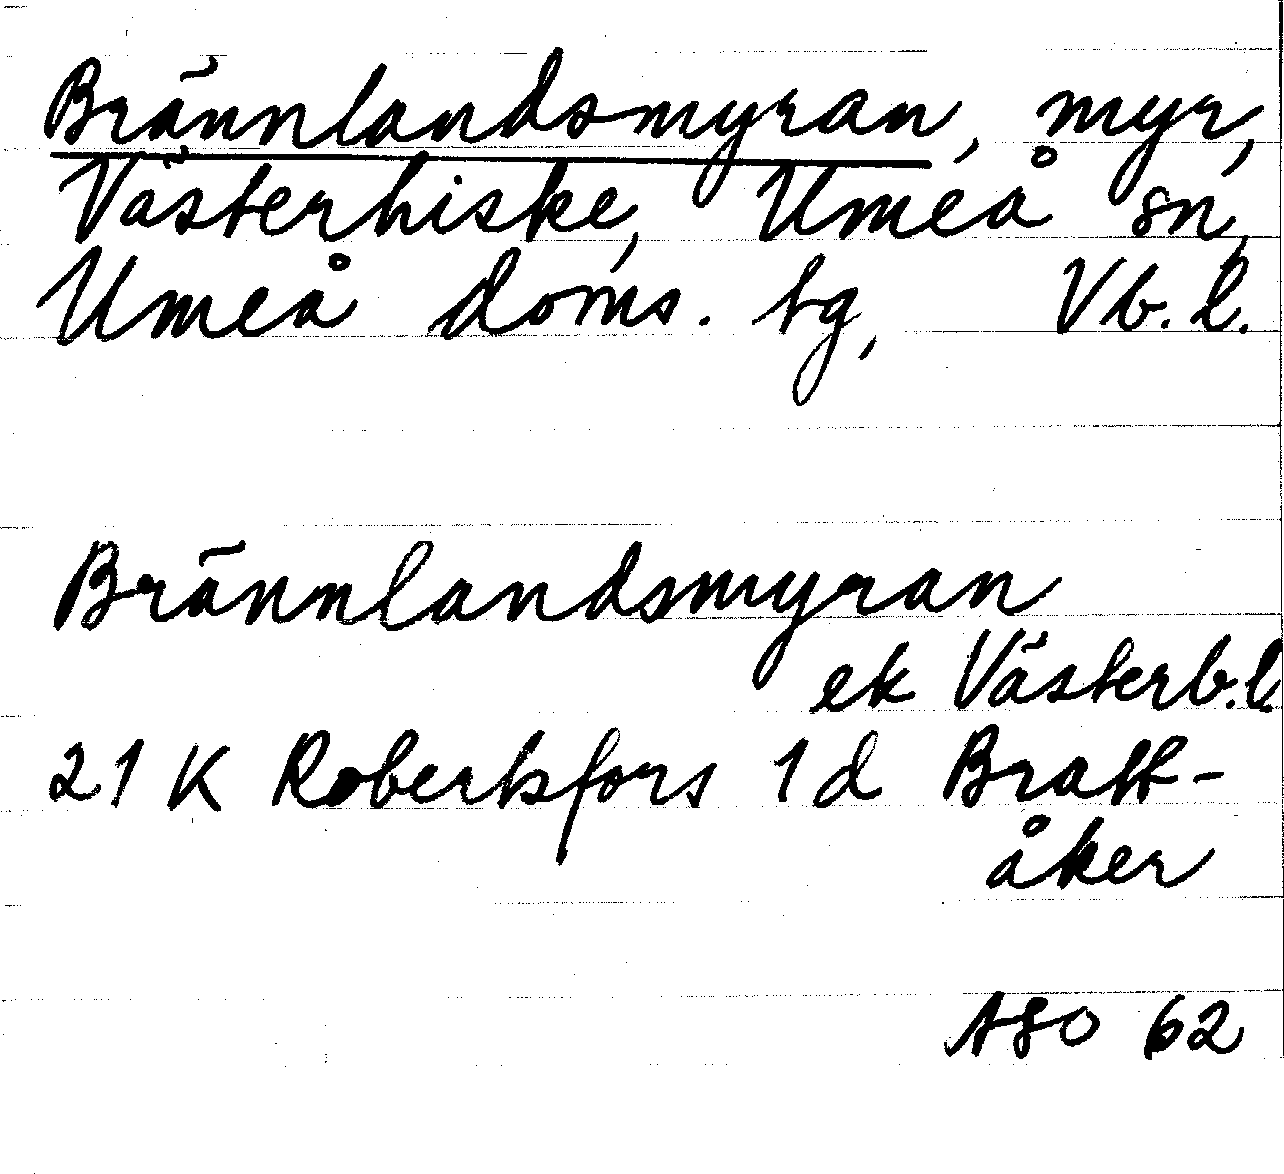 Brännlandsmyran, myr,
Västerhiske, Umeå sn,
Umeå doms. tg, Vb. l.
Brännlandsmyran
ek Västerb.l.
21 K Robertsfors 1 d Bratt-
åker
ASO 62